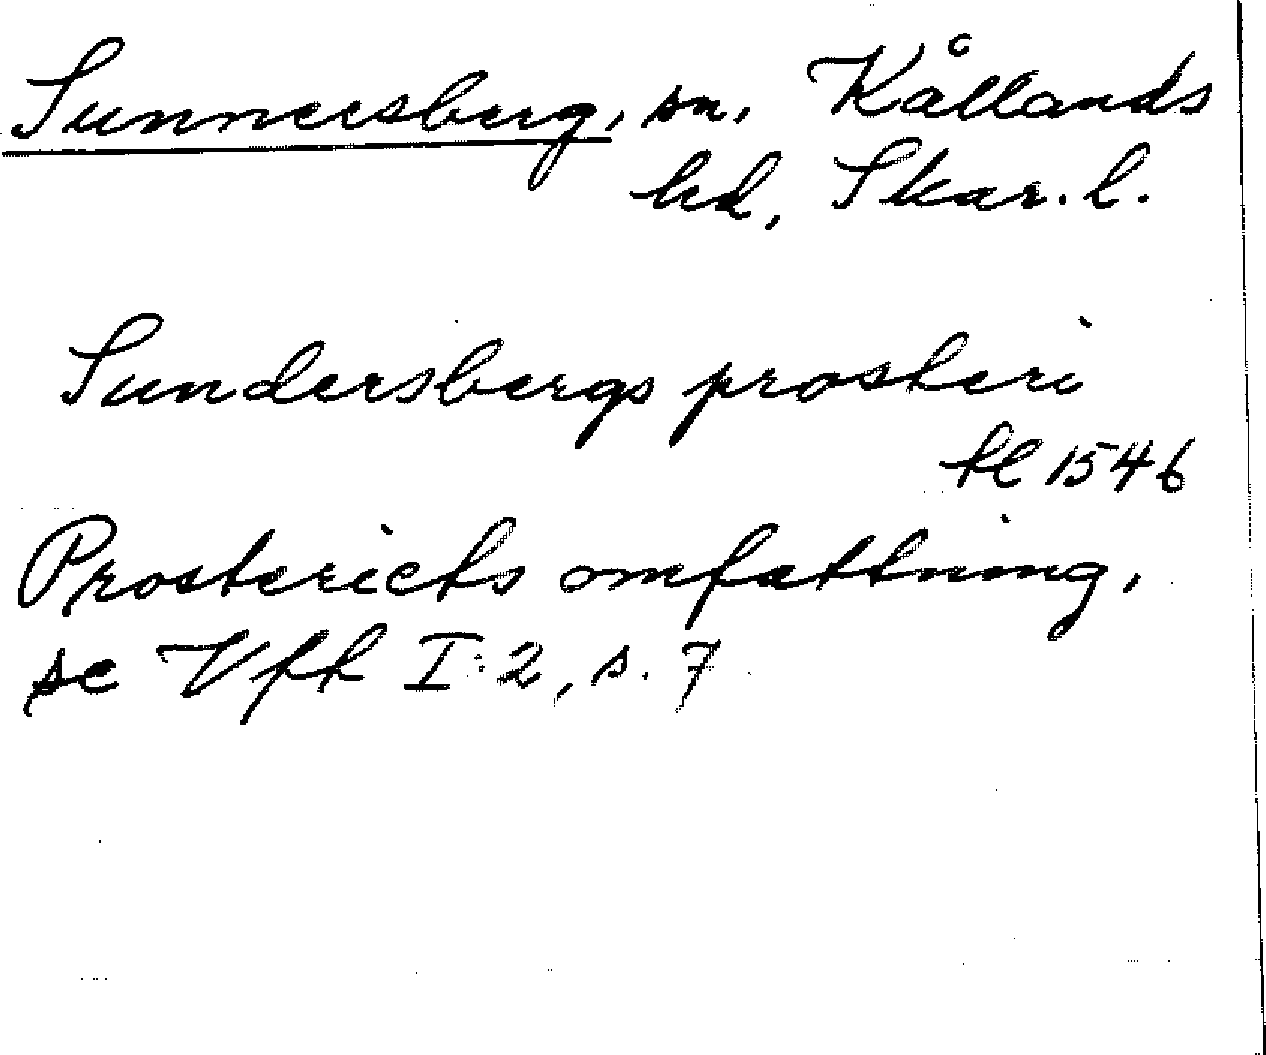 Sunnersberg, sn, Kållands
hd, Skar. l.
Sundersbergs prosteri
tl 1546
Prosteriets omfattning,
se Vfh I:2, s. 7